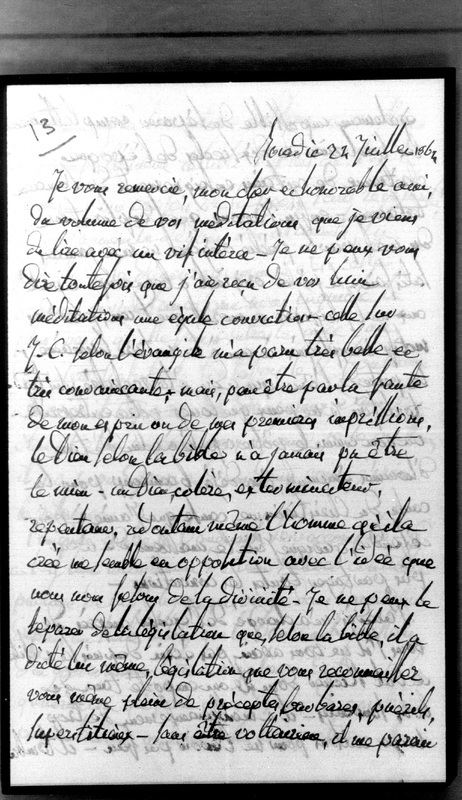 13
Mardi 24 Juillet 1864
Je vous remercie, mon cher et honorable ami,
du volume de vos méditations que je viens
de lire avec un vif intérêt – Je ne peux vous
dire toutefois que j'aie reçu de vos huit
méditations une égale conviction – celle sur
J.-C. selon l'évangile m'a paru très belle et
très convaincante – mais, peut être par la faute
de mon esprit ou de mes premières impressions,
le Dieu selon la bible n'a jamais pu être
le mien – un Dieu colère, exterminateur,
repentant, redoutant même l'homme qu'il a
créé me semble en opposition avec l'idée que
nous nous faisons de la divinité – Je ne peux le
séparer de la législation que, selon la bible, il a
dicté lui même, législation que vous reconnaissez
vous même pleine de préceptes barbares, puérils,
superstitieux – sans être voltairien, il me parait